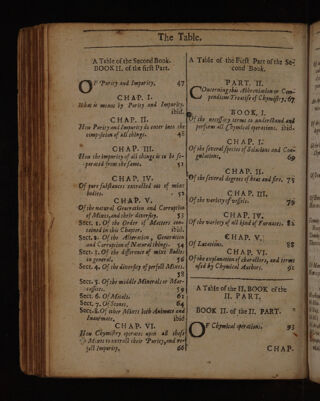 The Table.
A Table of the Second Book.
BOOK II. of the first Part.
OF Purity and Impurity, 47
CHAP. I.
What is meant by Purity and Impurity.
ibid.
CHAP. II.
How Purity and Impurity do enter into the
composition of all things. 48
CHAP. III.
How the impurity of all things is to be se-
parated from the same. 51
CHAP. IV.
Of pure substances extracted out of mixt
bodies. 52
CHAP. V.
Of the natural Generation and Corruption
of Mixts, and their diversity. 53
Sect. 1. Of the Order of Matters con-
tained in this Chapter. ibid.
Sect. 2. Of the Alteration, Generation
and Corruption of Natural things. 54
Sect. 3. Of the difference of mixt Bodies
in general. 56
Sect. 4. Of the diversity of perfect Mixts.
58
Sect. 5. Of the middle Minerals or Mar-
cassites. 59
Sect. 6. Of Metals. 61
Sect. 7. Of Stones. 64
Sect. 8. Of other Mixts both Animate and
Inanimate. ibid
CHAP. VI.
How Chymistry operates upon all these
Mixts to extract their Purity, and re-
ject Impurity. 66
A Table of the First Part of the Se-
cond Book.
PART. II.
Concerning this Abbreviation or Com-
pendium Treatise of Chymistry, 67
BOOK. I.
Of the necessary terms to understand and
perform all Chymical operations. ibid.
CHAP. I.
Of the several species of Solutions and Coa-
gulations, 69
CHAP. II.
Of the several degrees of heat and fire. 75
CHAP. III.
Of the variety of vessels. 79
CHAP. IV.
Of the variety of all kind of Furnaces. 82
CHAP. V.
Of Lutations. 88
CHAP. VI.
Of the explanation of characters, and terms
used by Chymical Authors. 91
A Table of the II. BOOK of the
II. PART.
BOOK II. of the II. PART.
OF Chymical operations. 93
CHAP.